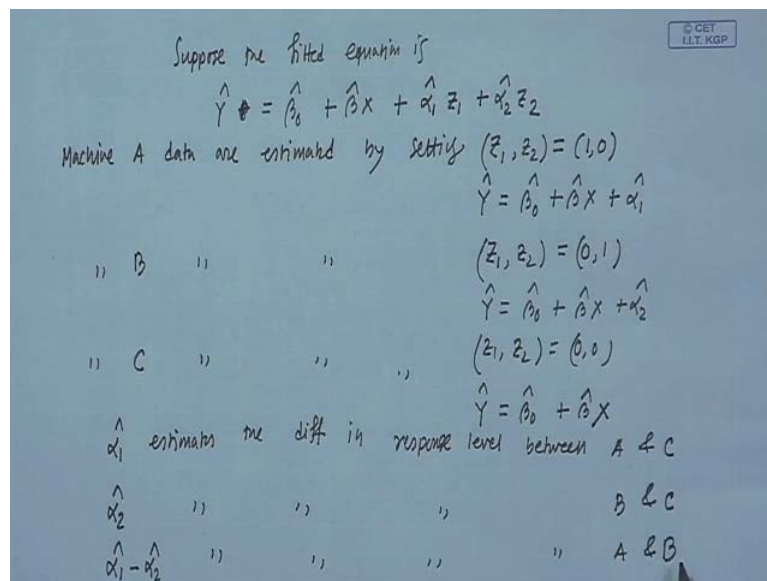 © CET
I.I.T. KGP
Suppose the fitted equation is
Ŷ = β̂₀ + β̂x + α̂₁ z₁ + α̂₂ z₂
Machine A data are estimated by setting (z₁, z₂) = (1,0)
Ŷ = β̂₀ + β̂x + α̂₁
,, B ,, ,, (z₁, z₂) = (0,1)
Ŷ = β̂₀ + β̂x + α̂₂
,, C ,, ,, ,, (z₁, z₂) = (0,0)
Ŷ = β̂₀ + β̂x
α̂₁ estimates the diff in response level between A & C
α̂₂ ,, ,, ,, B & C
α̂₁ - α̂₂ ,, ,, ,, ,, A & B